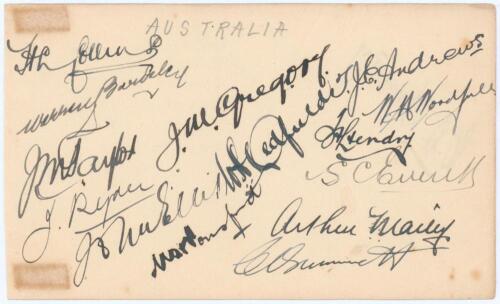 AUSTRALIA
H L Collins
Warren Bardsley
J. M. Gregory
T J E Andrews
W M Woodfull
J M Taylor
W A Oldfield
H L Hendry
J. Ryder
S C Everett
J L Ellis
W H Ponsford
Arthur Mailey
C V Grimmett